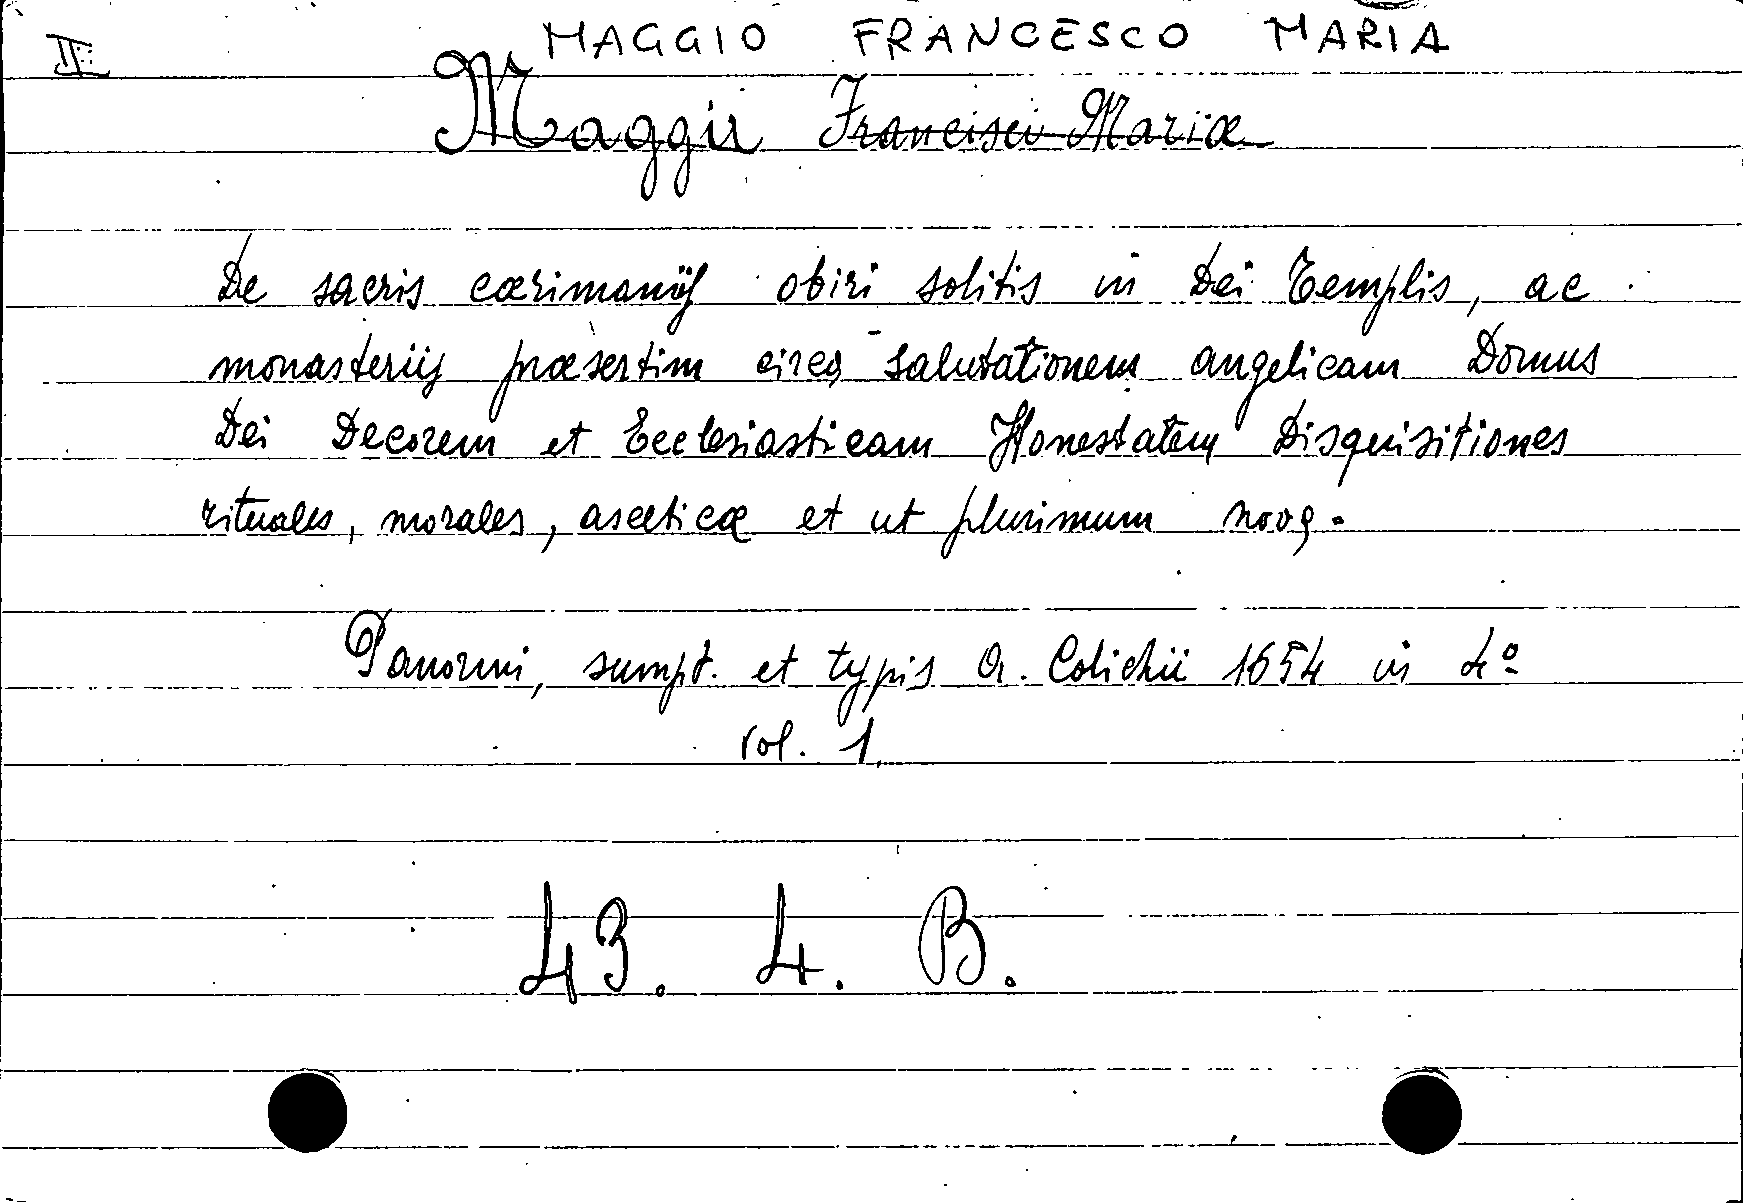 II
MAGGIO FRANCESCO MARIA
Maggii Francisci Mariæ
De sacris cærimonijs obiri solitis in Dei Templis, ac
monasterijs præsertim circa salutationem angelicam Domus
Dei Decorem et Ecclesiasticam Honestatem Disquisitiones
rituales, morales, asceticæ et ut plurimum novę.
Panormi, sumpt. et typis A. Colichii 1654 in 4º
vol. 1
43. 4. B.